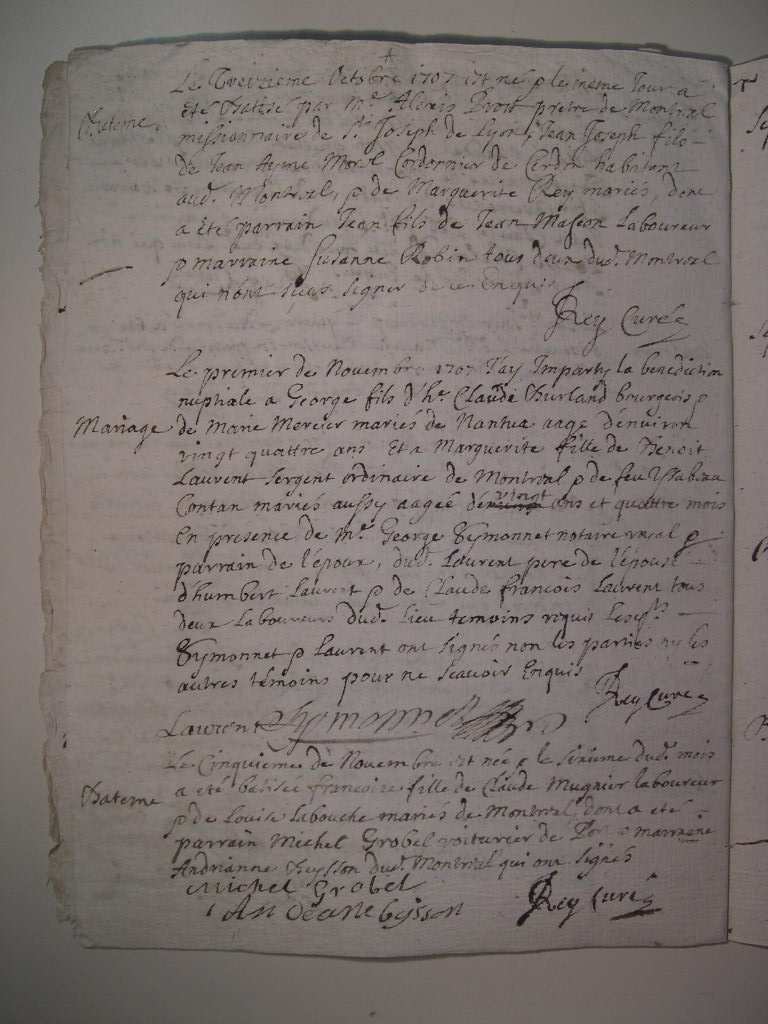 Le Treizieme Octobre 1707 est né & le meme Jour a
Bateme. été Batisé par Mre. Alexis prêtre de Montreal
missionnaire de St. Joseph de Lyon, Jean Joseph fils
de Jean Ayme Morel Cordonnier de Cerdon habitant
aud. Montreal, & de Marguerite Rey mariés, dont
a été parrain Jean fils de Jean Masson Laboureur
& marraine Susanne Robin tous deux dud. Montreal
qui n'ont sceu signer de ce Enquis
Rey Curé
Le premier de Novembre 1707 J'ay Imparty la benediction
nuptiale a George fils d'hr. Claude Burland bourgeois &
Mariage de Marie Mercier mariés de Nantua aagé d'environ
vingt quattre ans Et a Marguerite fille de Benoit
Laurent sergent ordinaire de Montreal & de feu Ysabeau
Contan mariés aussy aagée de vingt ans et quattre mois
En presence de Mre. George Bymonnet notaire royal &
parrain de l'époux, dud. Laurent pere de l'épouse
d'humbert Laurent & de Claude françois Laurent tous
deux Laboureurs dud. Lieu temoins requis Lesqls.
Bymonnet & Laurent ont signés non les parties ny les
autres témoins pour ne sçauoir Enquis
Rey Curé
Laurent Bymonnet
Le Cinquieme de Novembre est née & le sixieme dud. mois
Bateme a eté batisée françoise fille de Claude Mugnier laboureur
& de Louise Labouche mariés de Montreal, dont a eté
parrain Michel Grobel voiturier de & marraine
Andrianne Beysson dud. Montreal qui ont signés
Michel Grobel
Andeane beysson Rey Curé